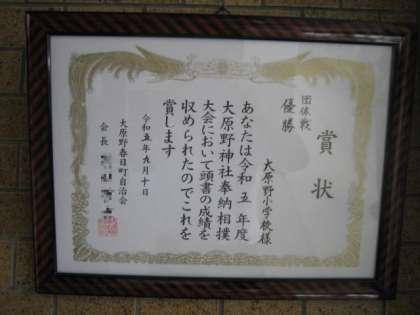 賞状
団体戦
優勝
大原野小学校様
あなたは令和五年度
大原野神社奉納相撲
大会において頭書の成績を
収められたのでこれを
賞します
令和五年九月十日
大原野春日町自治会
会長